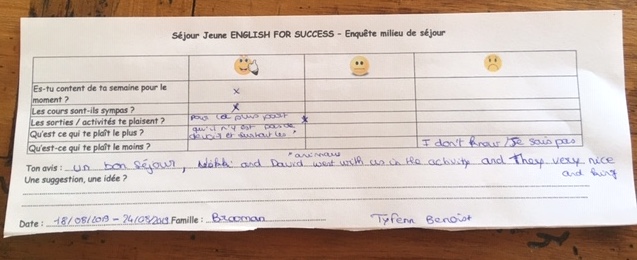 Séjour Jeune ENGLISH FOR SUCCESS – Enquête milieu de séjour
Es-tu content de ta semaine pour le moment ? x
Les cours sont-ils sympas ? x
Les sorties / activités te plaisent ? x
Qu'est ce qui te plaît le plus ? qu'il n'y est pas de
Qu'est-ce qui te plaît le moins ? I don't know / Je sais pas
Ton avis : un bon séjour, and David went with us in the activity and They very nice
and funny
* animaux
Une suggestion, une idée ?
Date : 18/08/2019 – 24/08/2019 Famille : Brooman
Tyfenn Benoist